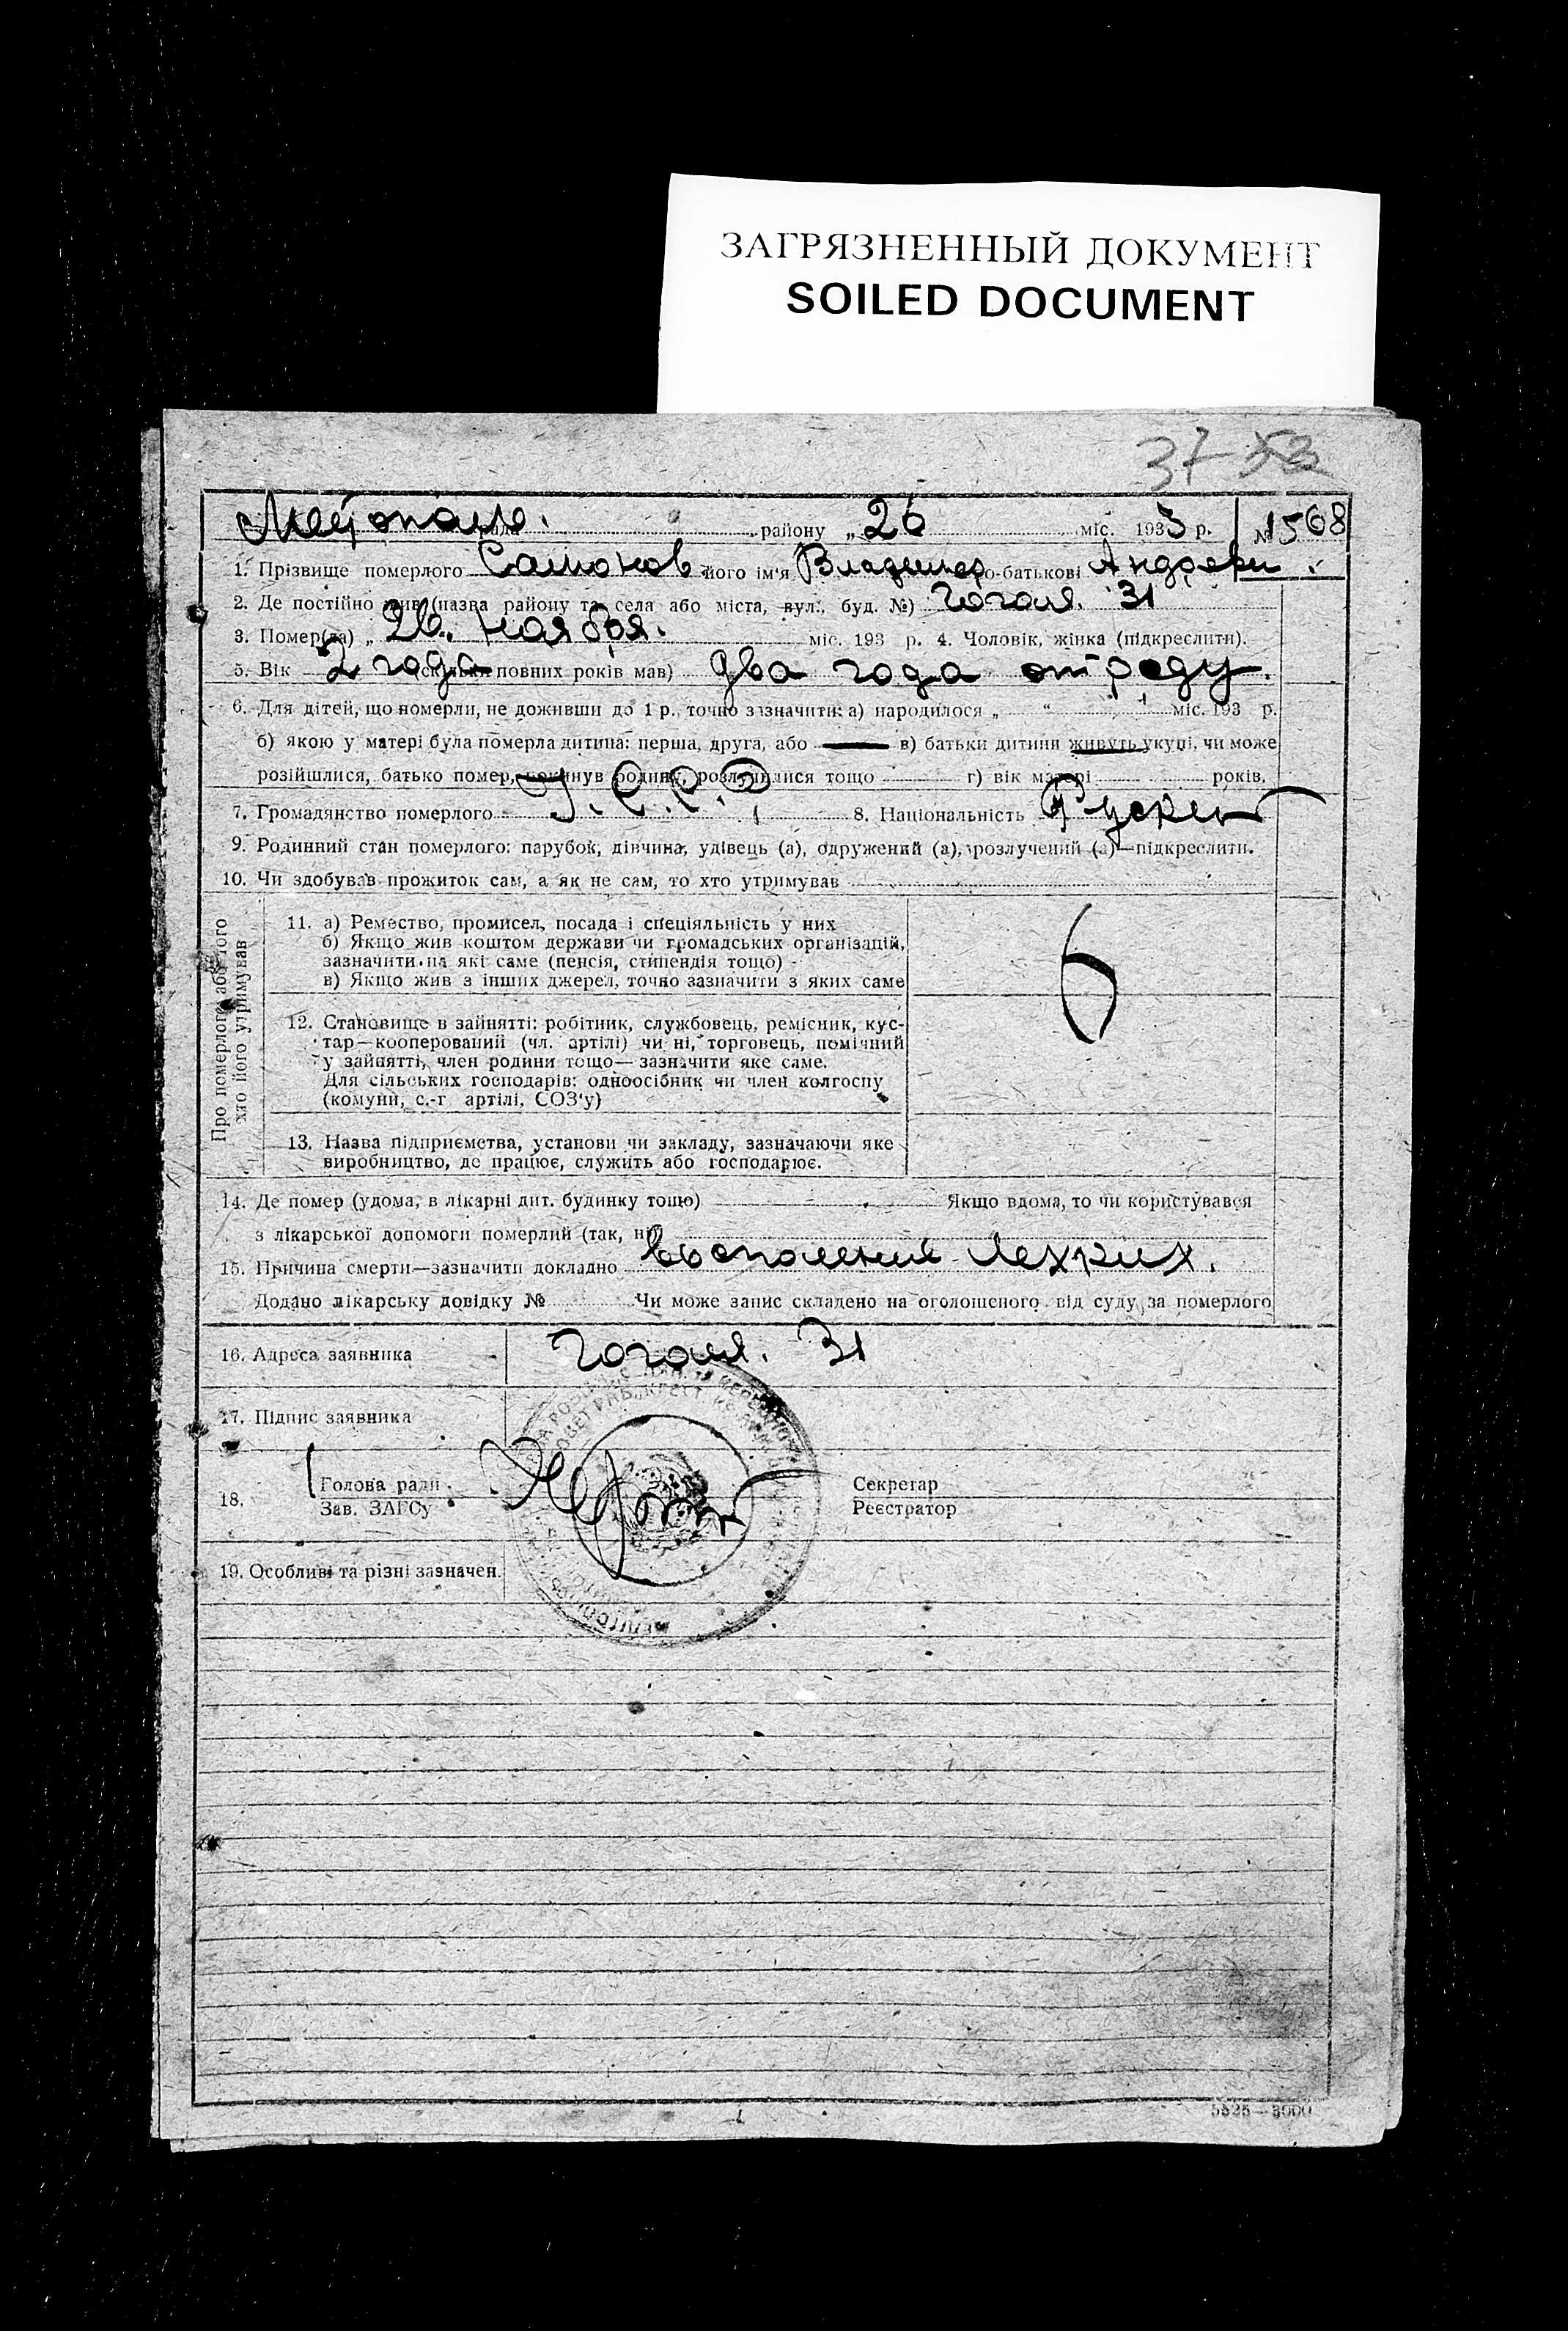 ЗАГРЯЗНЕННЫЙ ДОКУМЕНТ
SOILED DOCUMENT
37 53
рада району „ 26 міс. 1933 р. № 1568
1. Прізвище померлого Самонов його ім'я Владимир по-батькові Андреев.
2. Де постійно жив (назва району та села або міста, вул., буд. №) Гоголя. 31
3. Помер(ла) „ 26. ноября. міс. 193 р. 4. Чоловік, жінка (підкреслити).
5. Вік 2 года (скільки повних років мав) два года отроду.
6. Для дітей, що померли, не доживши до 1 р., точно зазначити: а) народилося „ “ міс. 193 р.
б) якою у матері була померла дитина: перша, друга, або в) батьки дитини живуть укупі, чи може
розійшлися, батько помер, покинув родину, розлучилися тощо г) вік матері років.
7. Громадянство померлого У.С.С.Р. 8. Національність Руский
9. Родинний стан померлого: парубок, дівчина, удівець (а), одружений (а), розлучений (а)—підкреслити.
10. Чи здобував прожиток сам, а як не сам, то хто утримував
Про померлого або того
хто його утримував
11. а) Ремество, промисел, посада і спеціяльність у них
б) Якщо жив коштом держави чи громадських організацій,
зазначити на які саме (пенсія, стипендія тощо)
в) Якщо жив з інших джерел, точно зазначити з яких саме
12. Становище в зайнятті: робітник, службовець, ремісник, кус-
тар—кооперований (чл. артілі) чи ні, торговець, помічний
у зайнятті, член родини тощо—зазначити яке саме.
Для сільських господарів: одноосібник чи член колгоспу
(комуни, с.-г. артілі, СОЗ'у)
13. Назва підприємства, установи чи закладу, зазначаючи яке
виробництво, де працює, служить або господарює.
14. Де помер (удома, в лікарні дит. будинку тощо) Якщо вдома, то чи користувався
з лікарської допомоги померлий (так, ні)
15. Причина смерти—зазначити докладно воспаление легких.
Додано лікарську довідку № Чи може запис складено на оголошеного від суду за померлого
16. Адреса заявника Гоголя. 31
17. Підпис заявника
18. Голова ради Секретар
Зав. ЗАГСу Реєстратор
19. Особливі та різні зазначен.